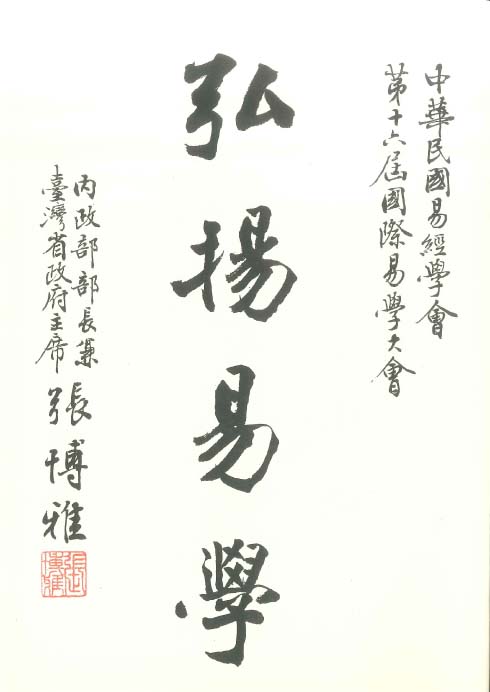 中華民國易經學會
第十六屆國際易學大會
弘揚易學
內政部部長兼
臺灣省政府主席
張博雅
張博雅